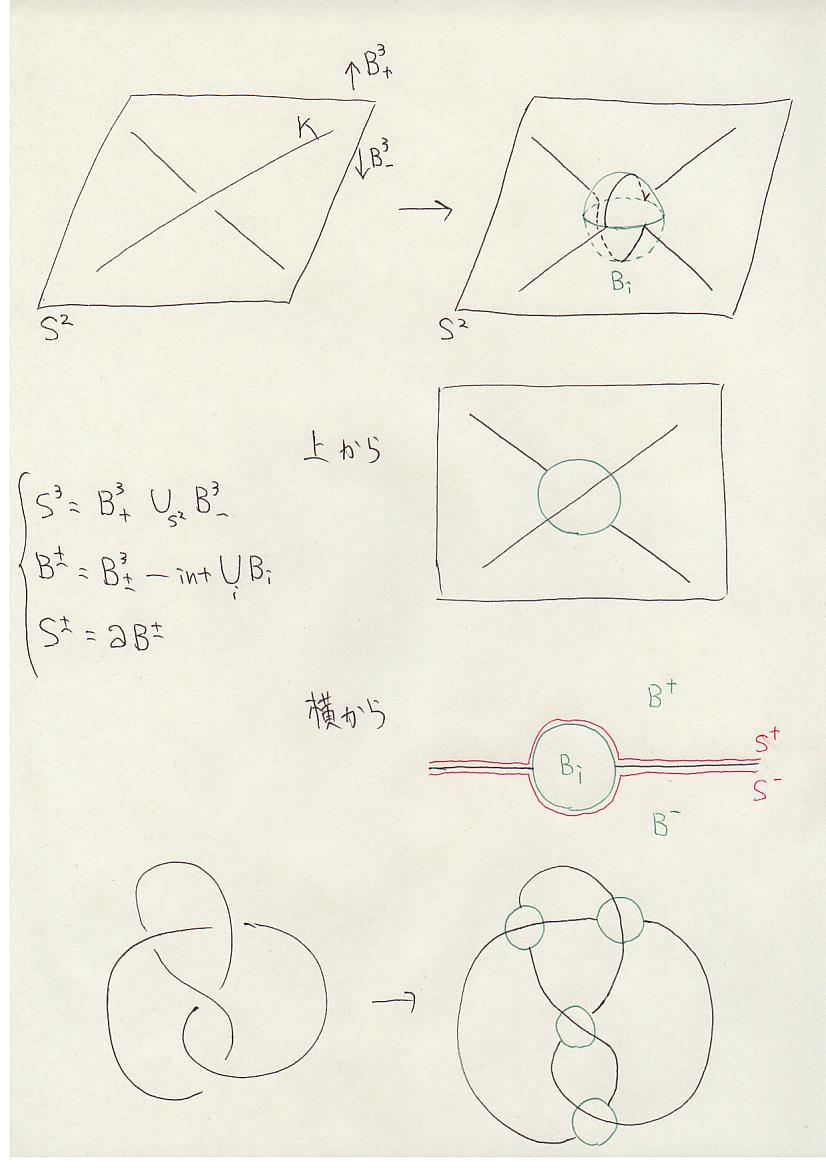 ↑B³₊
K
↓B³₋
→
Bᵢ
S²
S²
上から
S³ = B³₊ ∪_{S²} B³₋
B^± = B³_± − int ∪_i Bᵢ
S^± = ∂B^±
横から
B⁺
S⁺
Bᵢ
S⁻
B⁻
→